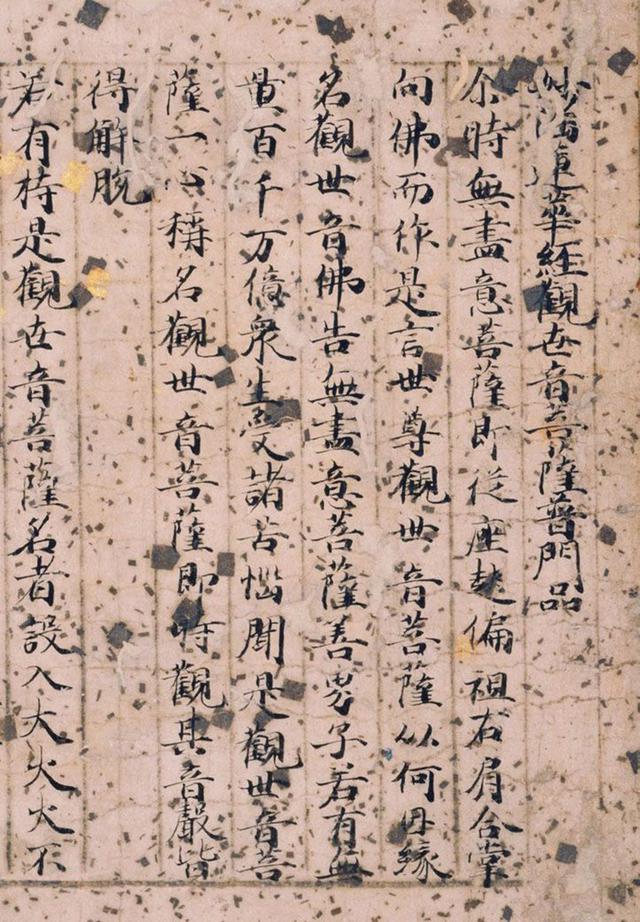 妙法蓮華經觀世音菩薩普門品
尒時無盡意菩薩即從座起偏袒右肩合掌
向佛而作是言世尊觀世音菩薩以何因緣
名觀世音佛告無盡意菩薩善男子若有無
量百千万億衆生受諸苦惱聞是觀世音菩
薩一心稱名觀世音菩薩即時觀其音聲皆
得解脫
若有持是觀世音菩薩名者設入大火火不